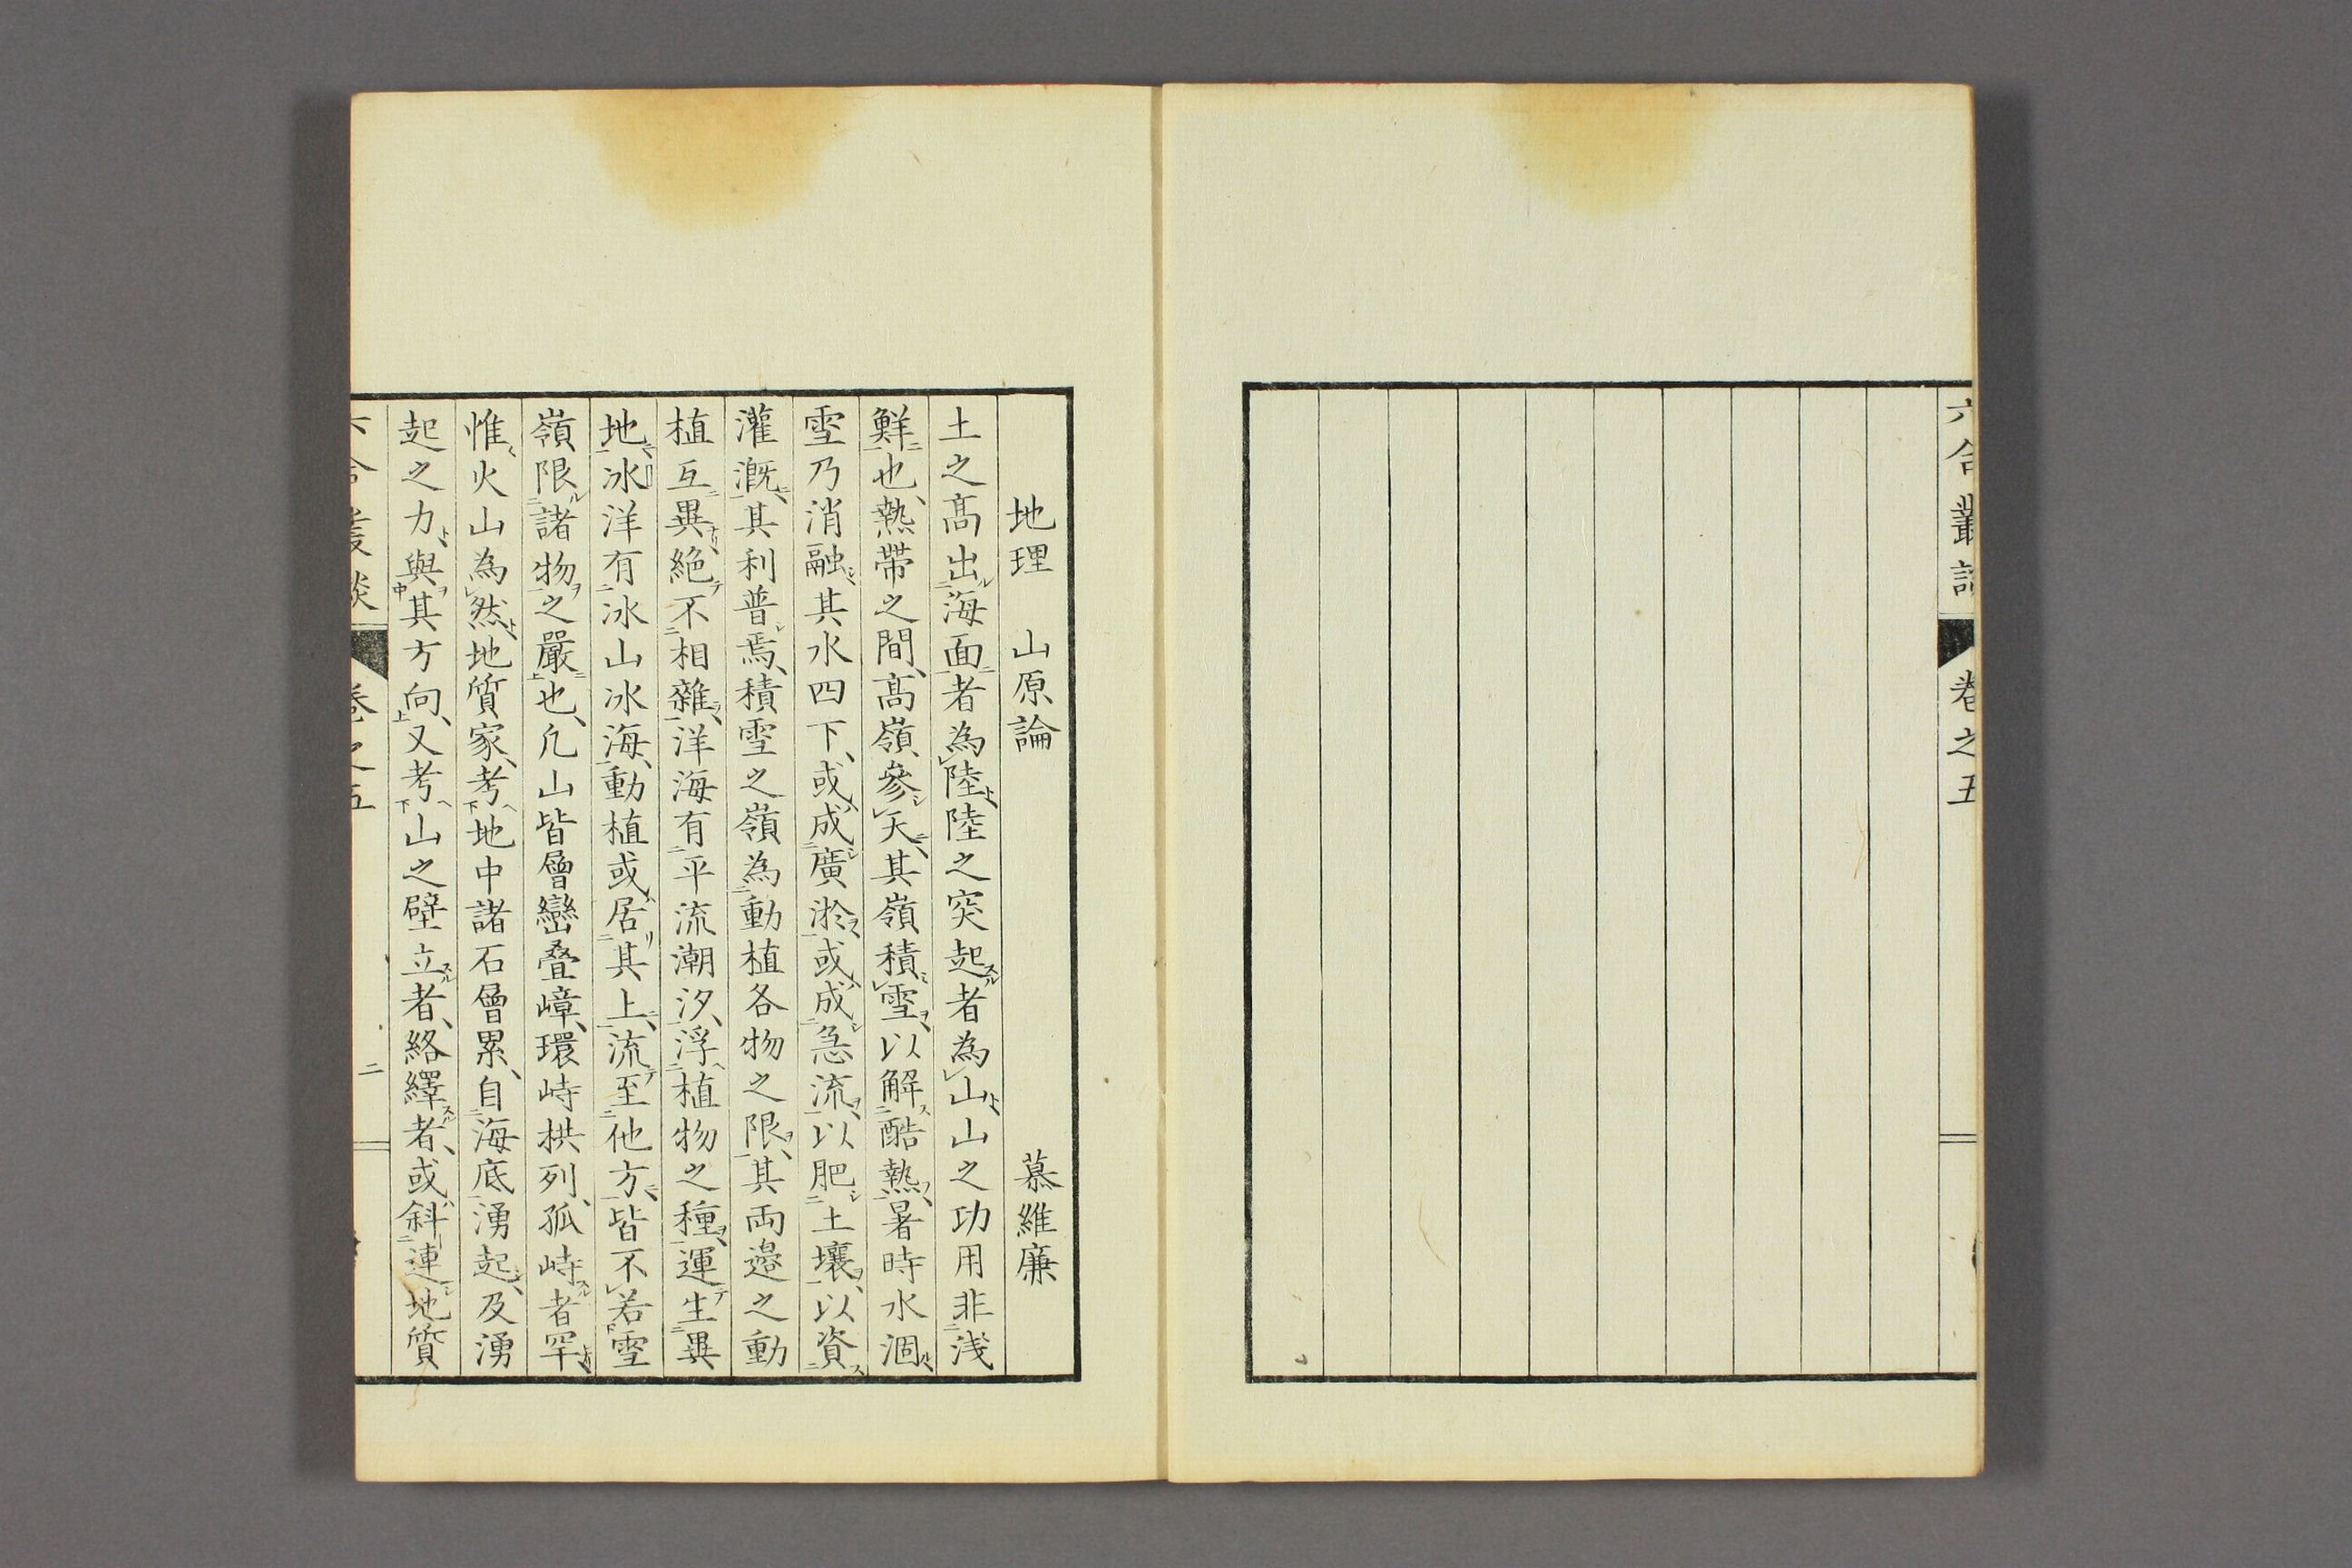 六合叢談 卷之五
地理 山原論 慕維廉
土之髙出海面者為陸陸之突起者為山山之功用非浅
鮮也、熱帶之間、髙嶺、參天、其嶺積雪、以解酷熱、暑時水涸、
雪乃消融、其水四下、或成廣淤、或成急流、以肥土壤、以資
灌漑、其利普焉、積雪之嶺為動植各物之限、其両邉之動
植互異、絶不相雜、洋海有平流潮汐、浮植物之種、運生異
地、冰洋有冰山冰海、動植或居其上、流至他方、皆不若雪
嶺限諸物之嚴也、凢山皆層巒叠嶂、環峙拱列、孤峙者罕、
惟火山為然、地質家、考地中諸石層累、自海底湧起、及湧
起之力、與其方向、又考山之壁立者、絡繹者、或斜連地質
六合叢談 卷之五 二